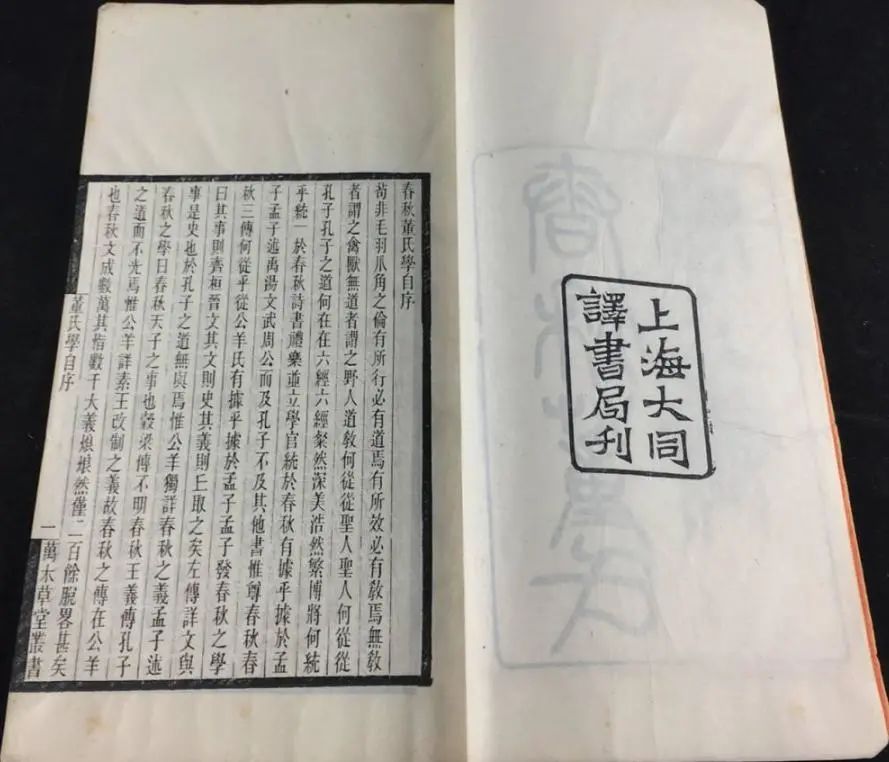 上海大同
譯書局刊
春秋董氏學自序
苟非毛羽爪角之倫有所行必有道焉有所效必有敎焉無敎
者謂之禽獸無道者謂之野人道敎何從從聖人聖人何從從
孔子孔子之道何在在六經六經粲然深美浩然繁博將何統
乎統一於春秋詩書禮樂並立學官統於春秋有據乎據於孟
子孟子述禹湯文武周公而及孔子不及其他書惟尊春秋春
秋三傳何從乎從公羊氏有據乎據於孟子孟子發春秋之學
曰其事則齊桓晉文其文則史其義則丘取之矣左傳詳文與
事是史也於孔子之道無與焉惟公羊獨詳春秋之義孟子述
春秋之學曰春秋天子之事也穀梁傳不明春秋王義傳孔子
之道而不光焉惟公羊詳素王改制之義故春秋之傳在公羊
也春秋文成數萬其指數千大義烺烺然僅二百餘脫畧甚矣
董氏學自序 一 萬木草堂叢書